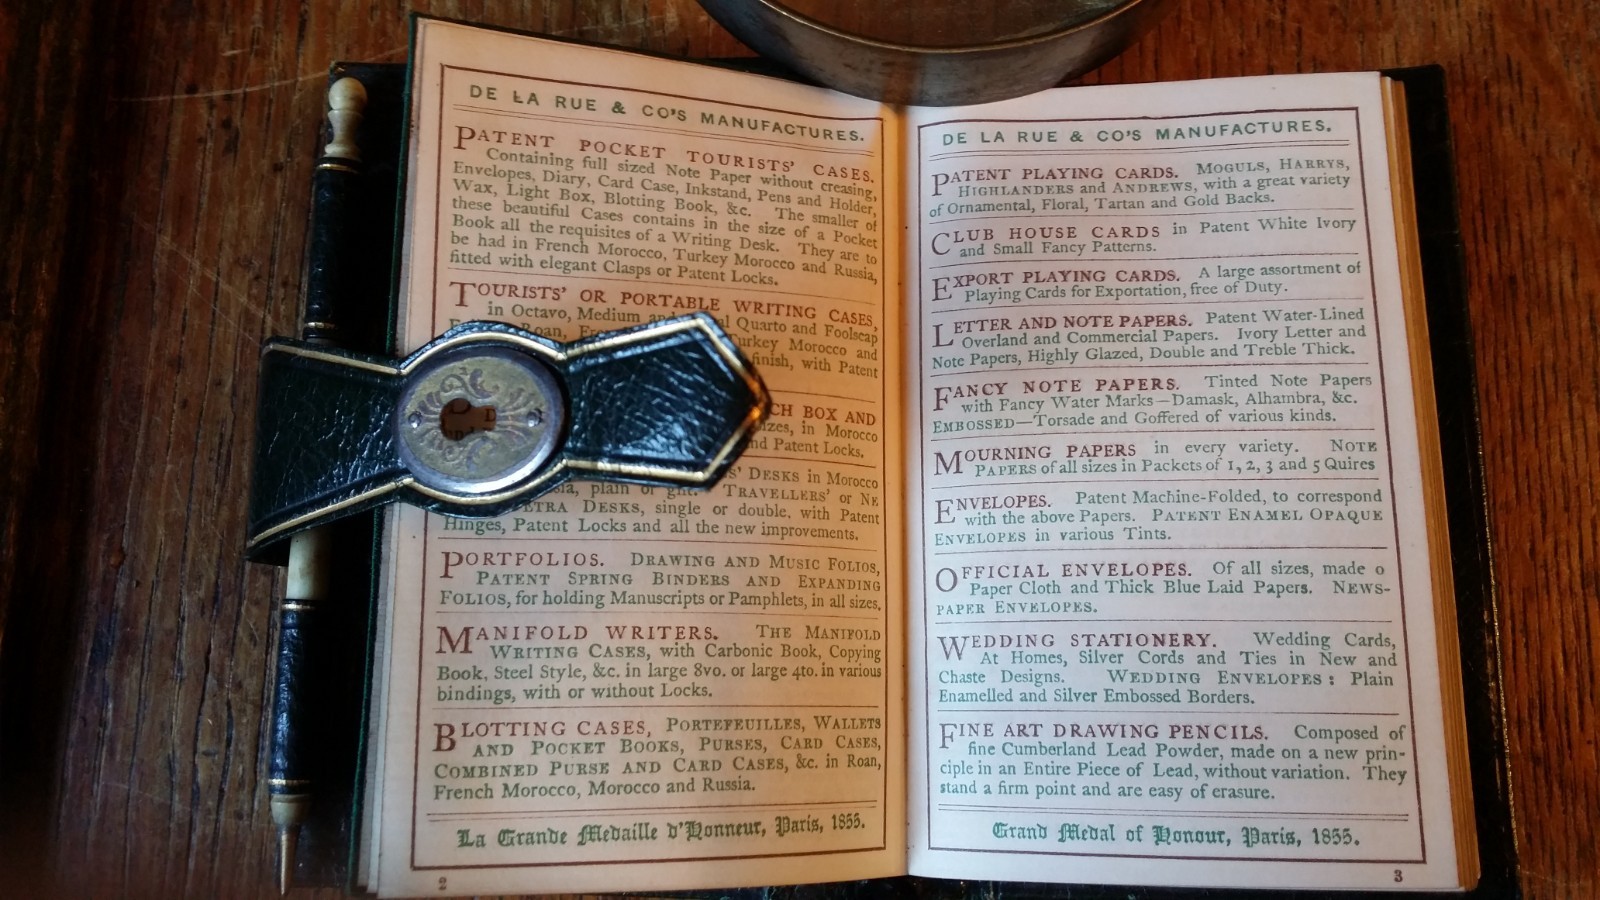 DE LA RUE & CO'S MANUFACTURES.
PATENT POCKET TOURISTS' CASES.
Containing full sized Note Paper without creasing,
Envelopes, Diary, Card Case, Inkstand, Pens and Holder,
Wax, Light Box, Blotting Book, &c. The smaller of
these beautiful Cases contains in the size of a Pocket
Book all the requisites of a Writing Desk. They are to
be had in French Morocco, Turkey Morocco and Russia,
fitted with elegant Clasps or Patent Locks.
TOURISTS' OR PORTABLE WRITING CASES,
in Octavo, Medium and Quarto and Foolscap
Roan, Turkey Morocco and
finish, with Patent
BOX AND
in Morocco
and Patent Locks.
DESKS in Morocco
plain or gilt. TRAVELLERS' or NE
DESKS, single or double, with Patent
Hinges, Patent Locks and all the new improvements.
PORTFOLIOS. DRAWING AND MUSIC FOLIOS,
PATENT SPRING BINDERS AND EXPANDING
FOLIOS, for holding Manuscripts or Pamphlets, in all sizes.
MANIFOLD WRITERS. THE MANIFOLD
WRITING CASES, with Carbonic Book, Copying
Book, Steel Style, &c. in large 8vo. or large 4to. in various
bindings, with or without Locks.
BLOTTING CASES, PORTEFEUILLES, WALLETS
AND POCKET BOOKS, PURSES, CARD CASES,
COMBINED PURSE AND CARD CASES, &c. in Roan,
French Morocco, Morocco and Russia.
La Grande Medaille d'Honneur, Paris, 1855.
2
DE LA RUE & CO'S MANUFACTURES.
PATENT PLAYING CARDS. MOGULS, HARRYS,
HIGHLANDERS and ANDREWS, with a great variety
of Ornamental, Floral, Tartan and Gold Backs.
CLUB HOUSE CARDS in Patent White Ivory
and Small Fancy Patterns.
EXPORT PLAYING CARDS. A large assortment of
Playing Cards for Exportation, free of Duty.
LETTER AND NOTE PAPERS. Patent Water-Lined
Overland and Commercial Papers. Ivory Letter and
Note Papers, Highly Glazed, Double and Treble Thick.
FANCY NOTE PAPERS. Tinted Note Papers
with Fancy Water Marks—Damask, Alhambra, &c.
EMBOSSED—Torsade and Goffered of various kinds.
MOURNING PAPERS in every variety. NOTE
PAPERS of all sizes in Packets of 1, 2, 3 and 5 Quires
ENVELOPES. Patent Machine-Folded, to correspond
with the above Papers. PATENT ENAMEL OPAQUE
ENVELOPES in various Tints.
OFFICIAL ENVELOPES. Of all sizes, made o
Paper Cloth and Thick Blue Laid Papers. NEWS-
PAPER ENVELOPES.
WEDDING STATIONERY. Wedding Cards,
At Homes, Silver Cords and Ties in New and
Chaste Designs. WEDDING ENVELOPES: Plain
Enamelled and Silver Embossed Borders.
FINE ART DRAWING PENCILS. Composed of
fine Cumberland Lead Powder, made on a new prin-
ciple in an Entire Piece of Lead, without variation. They
stand a firm point and are easy of erasure.
Grand Medal of Honour, Paris, 1855.
3